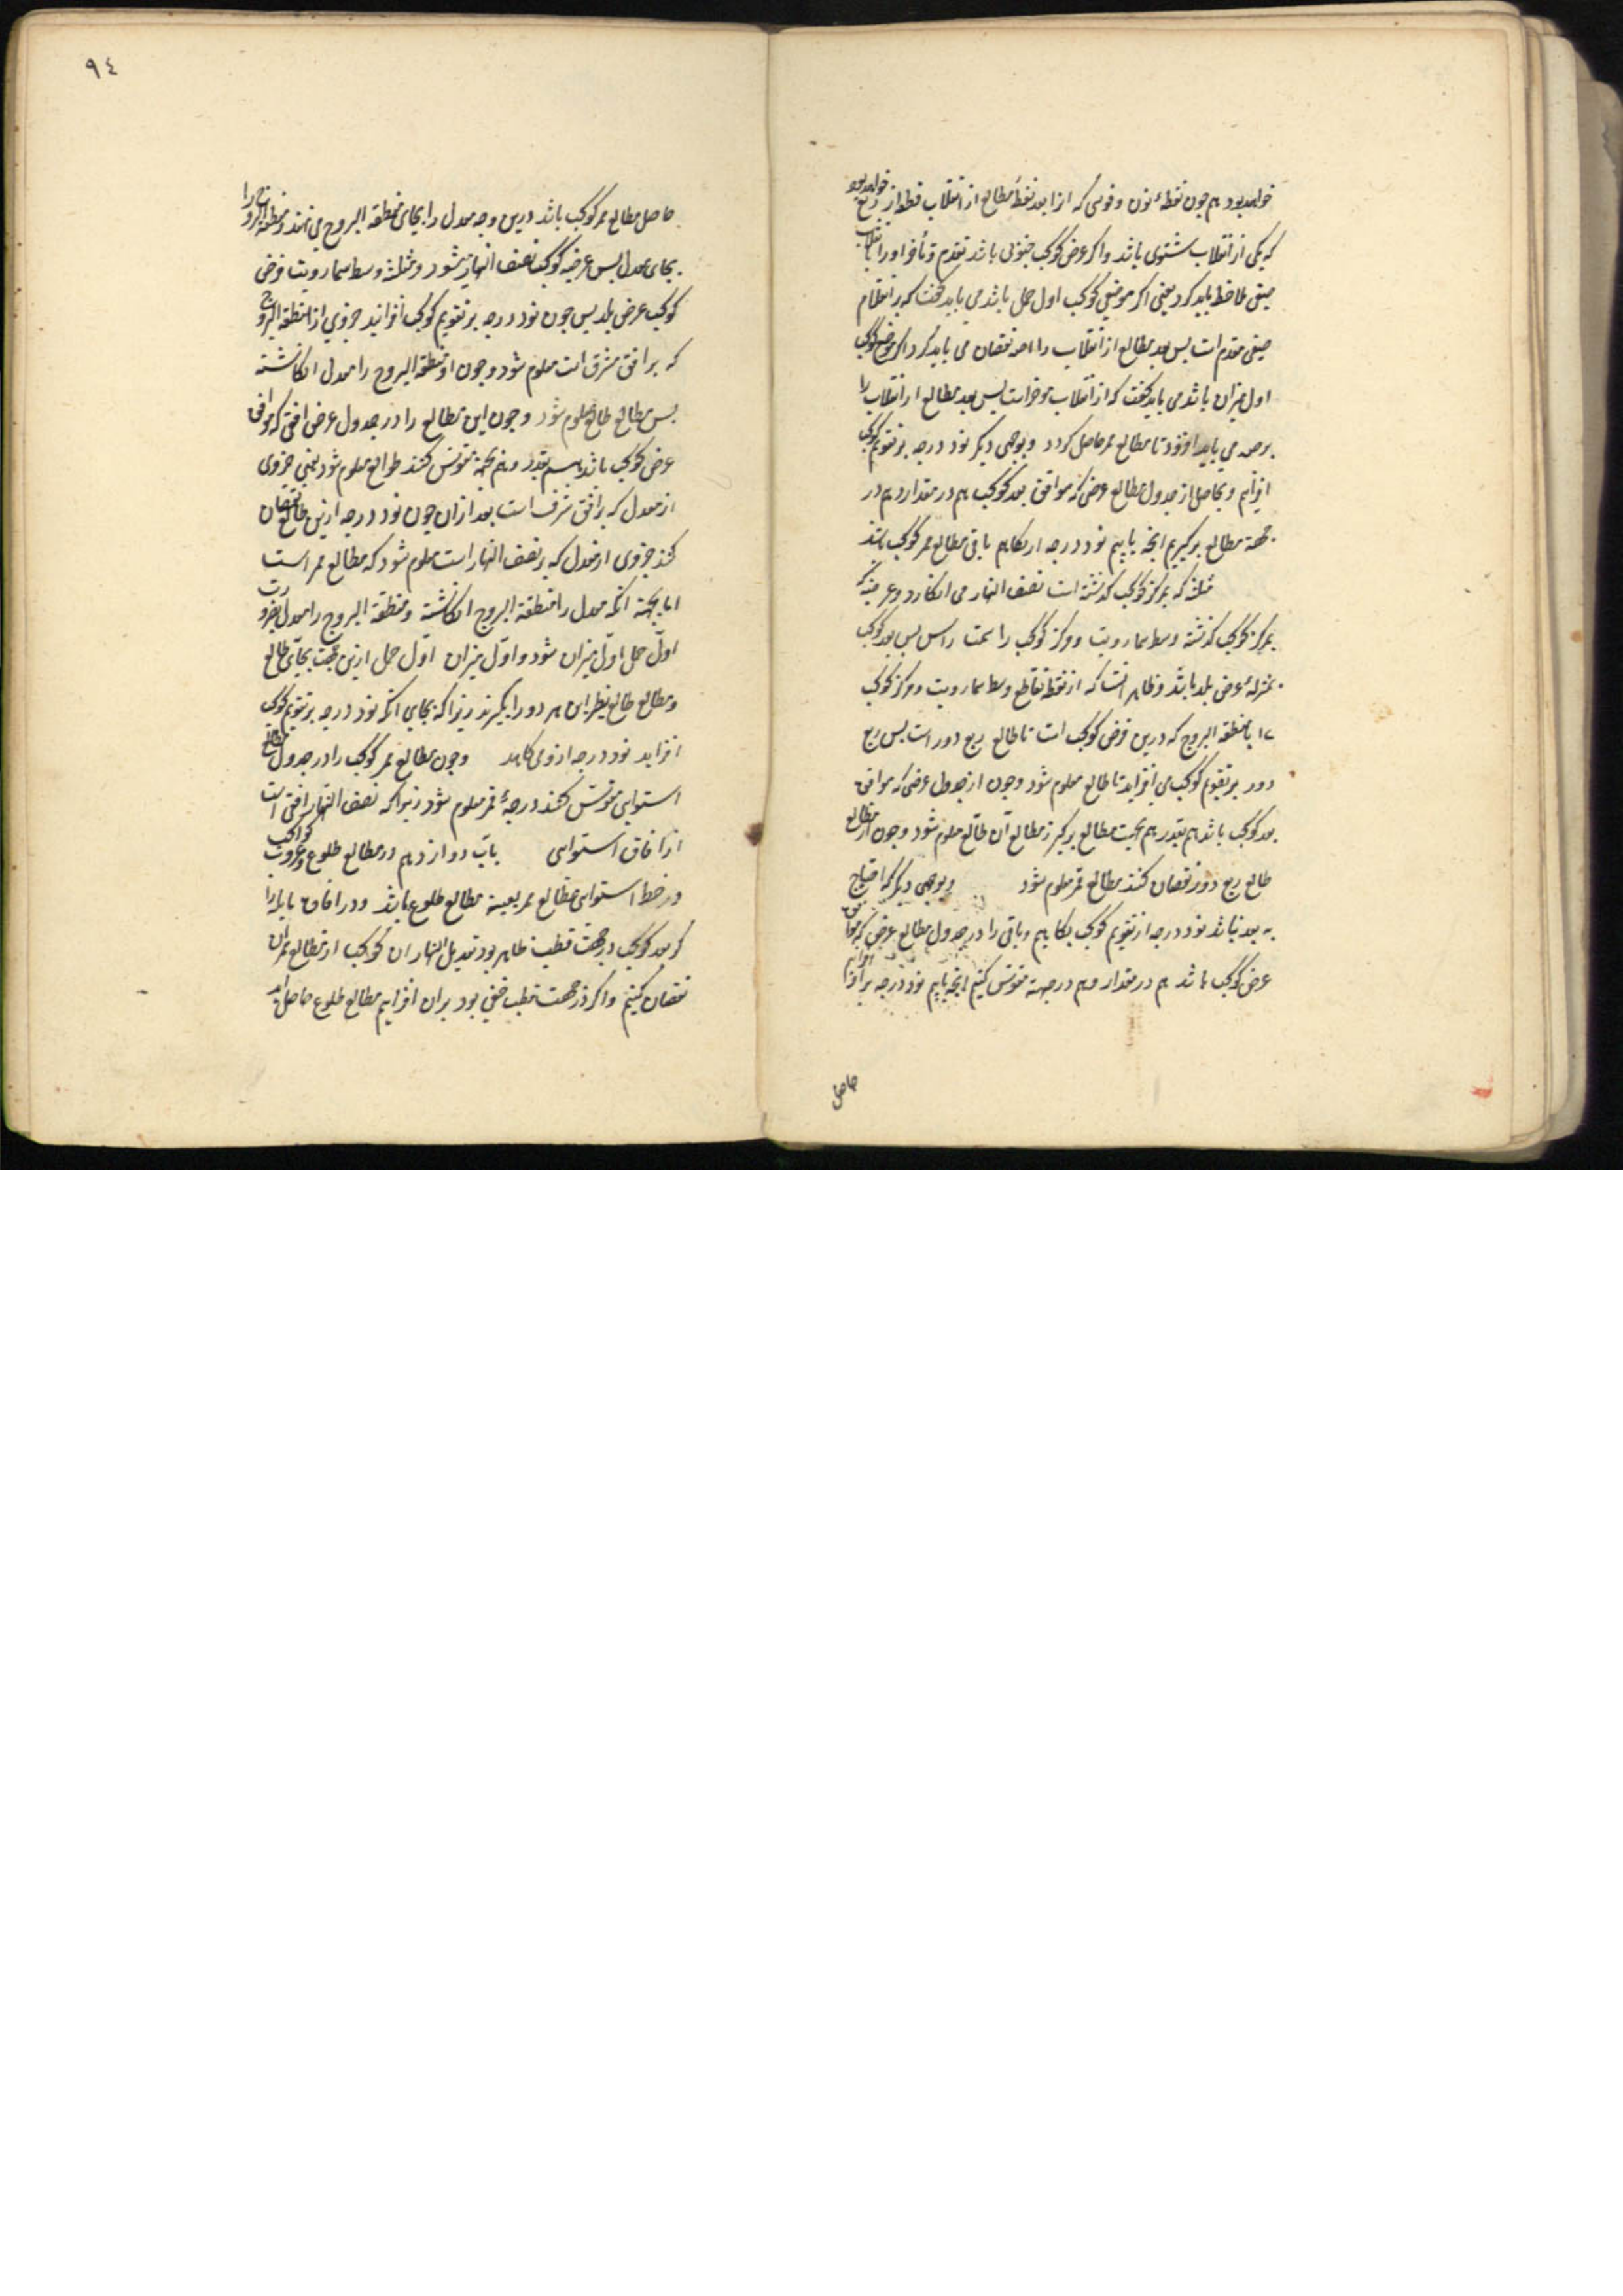 خواهد بود هم چون نقطهٔ نون و قوسی که از ابعد نقطهٔ مطالع از انقلاب قطر از ربع خواهد بود
که یکی از انقلاب شتوی باشد و اگر عرض کوکب جنوبی باشد تقدم و تأخر او را با انقلاب
صیفی ملاحظه باید کرد یعنی اگر موضع کوکب اول حمل باشد می باید گفت که بر انقلاب
صیفی مقدم است پس بعد مطالع از انقلاب را از نقصان می باید کرد و اگر موضع کوکب
اول میزان باشد می باید گفت که از انقلاب موخر است پس بعد مطالع از انقلاب را
بر می باید افزود تا مطالع ممر حاصل کردد و بوجهی دیگر نود درجه بر تقویم کوکب
افزایم و بحاصل از جدول مطالع عرضی که موافق بعد کوکب هم در مقدار و هم در
جهة مطالع برگیریم انچه یابیم نود درجه از بکاهیم باقی مطالع ممر کوکب باشد
مثلثه که بمرکز کوکب گذشته است نصف النهار می انکارد و عرضیه که
بمرکز کوکب گذشته وسط سما رویت و مرکز کوکب را سمت راس پس بعد کوکب
بمنزلهٔ عرض بلد باشد و ظاهر است که از نقطه تقاطع وسط سما رویت و مرکز کوکب
با منطقه البروج که درین فرض کوکب است تا طالع ربع دور است پس ربع
دور بر تقویم کوکب می افزاید تا طالع معلوم شود و چون از جدول عرضی که موافق
بعد کوکب باشد هم بقدر هم بجهت مطالع برگیرند مطالع آن طالع معلوم شود و چون از مطالع
طالع ربع دور نقصان کنند مطالع ممر معلوم شود و بوجهی دیگر که احتیاج
به بعد نباشد نود درجه از تقویم کوکب بکاهیم و باقی را در جدول مطالع عرضی که موافق
عرض کوکب باشد هم در مقدار و هم در جهة مقوس کنیم انچه یابیم نود درجه بر افزایم
حاصل
٩٤
حاصل مطالع ممر کوکب باشد درین وجه معدل را بجای منطقه البروج می نهند و منطقة البروج را
بجای معدل پس عرضیه کوکب نصف النهار شود و مثلثه وسط سما رویت و عرض
کوکب عرض بلد پس چون نود درجه بر تقویم کوکب افزایند جزوی از منطقه البروج
که بر افق مشرق است معلوم شود و چون او منطقه البروج را معدل انکاشته
پس مطالع طالع معلوم شود و چون این مطالع را در جدول عرض افقی که موافق
عرض کوکب باشد هم بقدر و هم بجهة مقوس کنند طوالع معلوم شود یعنی جزوی
از معدل که بر افق شرق است بعد از ان چون نود درجه ازین طالع نقصان
کنند جزوی از معدل که بر نصف النهار است معلوم شود که مطالع ممر است
اما بجهة انکه معدل را منطقة البروج انکاشته و منطقة البروج را معدل بضرورت
اول حمل اول میزان شود و اول میزان اول حمل ازین جهت بجای طالع
و مطالع طالع نظیر این هر دو را بگیرند زیرا که بجای انکه نود درجه بر تقویم کوکب
افزاید نود درجه ازو می کاهد و چون مطالع ممر کوکب را در جدول مطالع
استوایی مقوس کنند درجهٔ ممر معلوم شود زیرا که نصف النهار افقی است
از افاق استوایی باب دوازدهم در مطالع طلوع و غروب کواکب
در خط استوا مطالع ممر بعینه مطالع طلوع باشد و در افاق مایله
گر بعد کوکب در جهت قطب ظاهر بود تعدیل النهار ان کوکب از مطالع ممر ان
نقصان کنیم و اگر در جهت قطب خفی بود بر ان افزایم مطالع طلوع حاصل آید